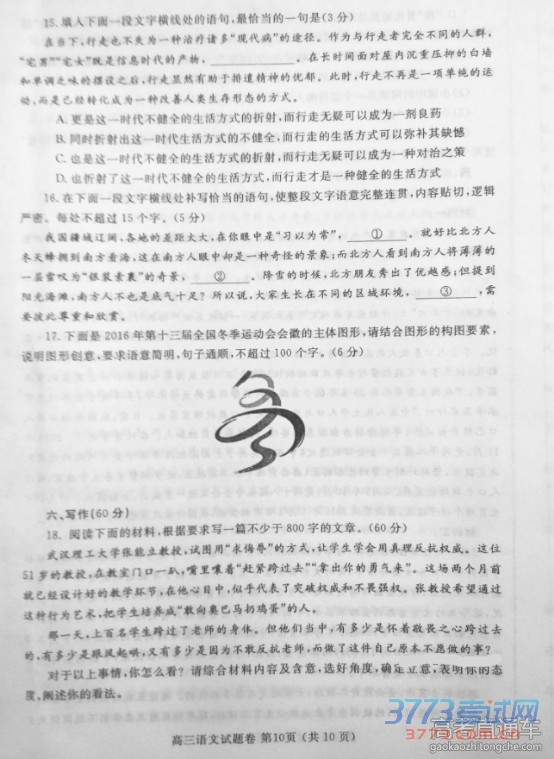 15. 填入下面一段文字横线处的语句,最恰当的一句是(3分)
在当下,行走也不失为一种治疗诸多“现代病”的途径。作为与行走者完全不同的人群,
“宅男”“宅女”既是信息时代的产物,____________。在长时间面对屋内沉重压抑的白墙
和单调乏味的摆设之后,行走显然有助于排遣精神的忧郁。此时,行走不再是一项单纯的运
动,而是已经转化成为一种改善人类生存形态的方式。
A. 更是这一时代不健全的生活方式的折射,而行走无疑可以成为一剂良药
B. 同时折射出这一时代生活方式的不健全,而行走的生活方式可以弥补其缺憾
C. 也是这一时代不健全的生活方式的折射,而行走无疑可以成为一种对治之策
D. 也折射了这一时代不健全的生活方式,而行走才是一种健全的生活方式
16. 在下面一段文字横线处补写恰当的语句,使整段文字语意完整连贯,内容贴切,逻辑
严密。每处不超过15个字。(5分)
我国疆域辽阔,各地的差距太大,在你眼中是“习以为常”,____①____。就好比北方人
冬天蜂拥到南方看海,这在南方人眼中却是一种奇怪的景象;而北方人看到南方人将薄薄的
一层雪叹为“银装素裹”的奇景,____②____。降雪的时候,北方朋友秀出了优越感;但提到
阳光海滩,南方人不也是底气十足?所以说,大家生长在不同的区域环境,____③____,需
要彼此尊重和欣赏。
17. 下面是2016年第十三届全国冬季运动会会徽的主体图形,请结合图形的构图要素,
说明图形创意,要求语意简明,句子通顺,不超过100个字。(6分)
六、写作(60分)
18. 阅读下面的材料,根据要求写一篇不少于800字的文章。(60分)
武汉理工大学张能立教授,试图用“求侮辱”的方式,让学生学会用真理反抗权威。这位
51岁的教授,在教室门口一趴,嘴里嚷着“赶紧跨过去”“拿出你的勇气来”。这场两个月前
就已经设计好的教学环节,在他心目中,似乎代表了突破权威和不畏强权。张教授希望通过
这种行为艺术,把学生培养成“敢向奥巴马扔鸡蛋”的人。
那一天,上百名学生跨过了老师的身体。但他们当中,有多少是怀着敬畏之心跨过去
的,有多少是跟风起哄,又有多少是因为不敢反抗老师,而做了这件自己原本不愿做的事?
对于以上事情,你怎么看?请综合材料内容及含意,选好角度,确定立意,表明你的态
度,阐述你的看法。
高三语文试题卷 第10页(共10页)
3773考试网
3773.com.cn
高考直通车
gaokaozhitongche.com